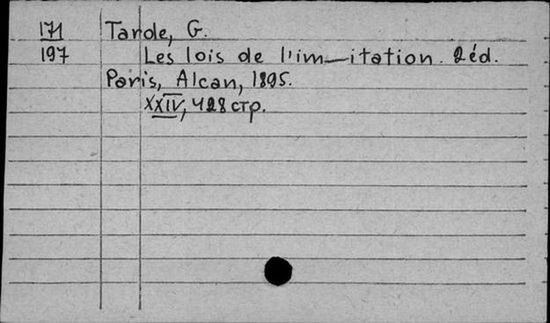 171 Tarde, G.
197 Les lois de l'im—itation. 2 éd.
Paris, Alcan, 1895.
XXIV, 428 стр.